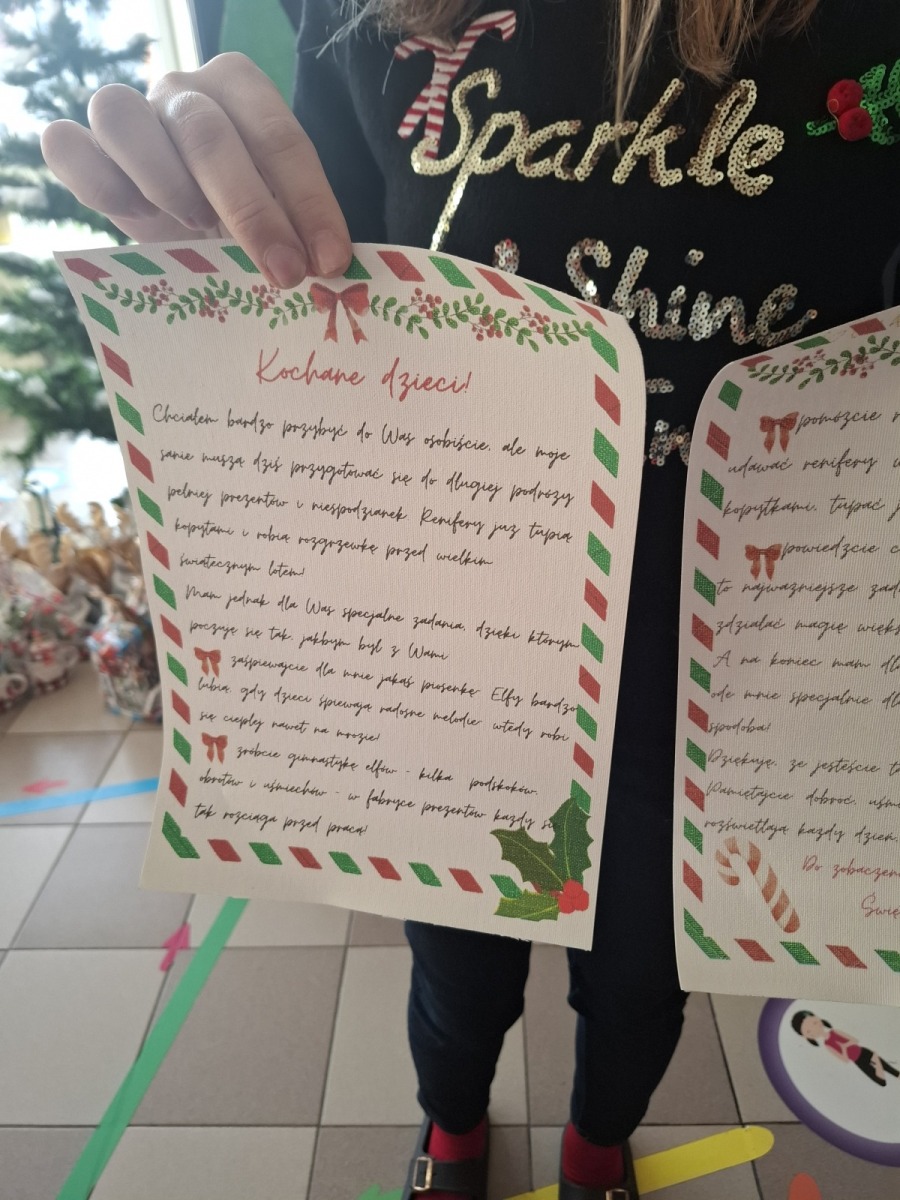 Sparkle
Shine
Kochane dzieci!
Chciałem bardzo przybyć do Was osobiście, ale moje
sanie muszą dziś przygotować się do długiej podróży
pełniej prezentów i niespodzianek. Renifery już tupią
kopytami i robią rozgrzewkę przed wielkim
świątecznym lotem!
Mam jednak dla Was specjalne zadania, dzięki którym
poczuję się tak, jakbym był z Wami
zaśpiewajcie dla mnie jakąś piosenkę. Elfy bardzo
lubią, gdy dzieci śpiewają radosne melodie- wtedy robi
się cieplej nawet na mrozie!
zróbcie gimnastykę elfów - kilka podskoków,
obrotów i uśmiechów - w fabryce prezentów każdy się
tak rozciąga przed pracą!
pomóżcie
udawać renifery
kopytkami, tupać
powiedzcie
to najważniejsze
zdziałać magię
A na koniec mam
ode mnie specjalnie
spodoba!
Dziękuję, że jesteście
Pamiętajcie dobroć,
rozświetlają każdy dzień.
Do